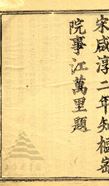 宋咸淳二年知樞密
院事江萬里題